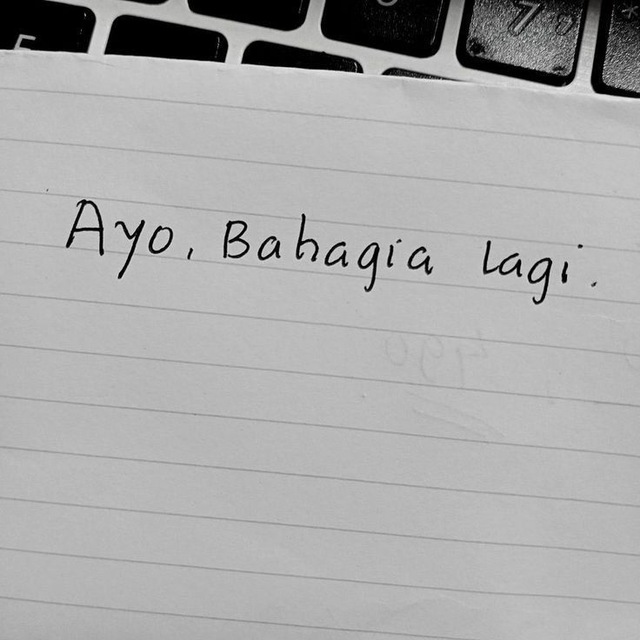 7
Ayo, Bahagia lagi.